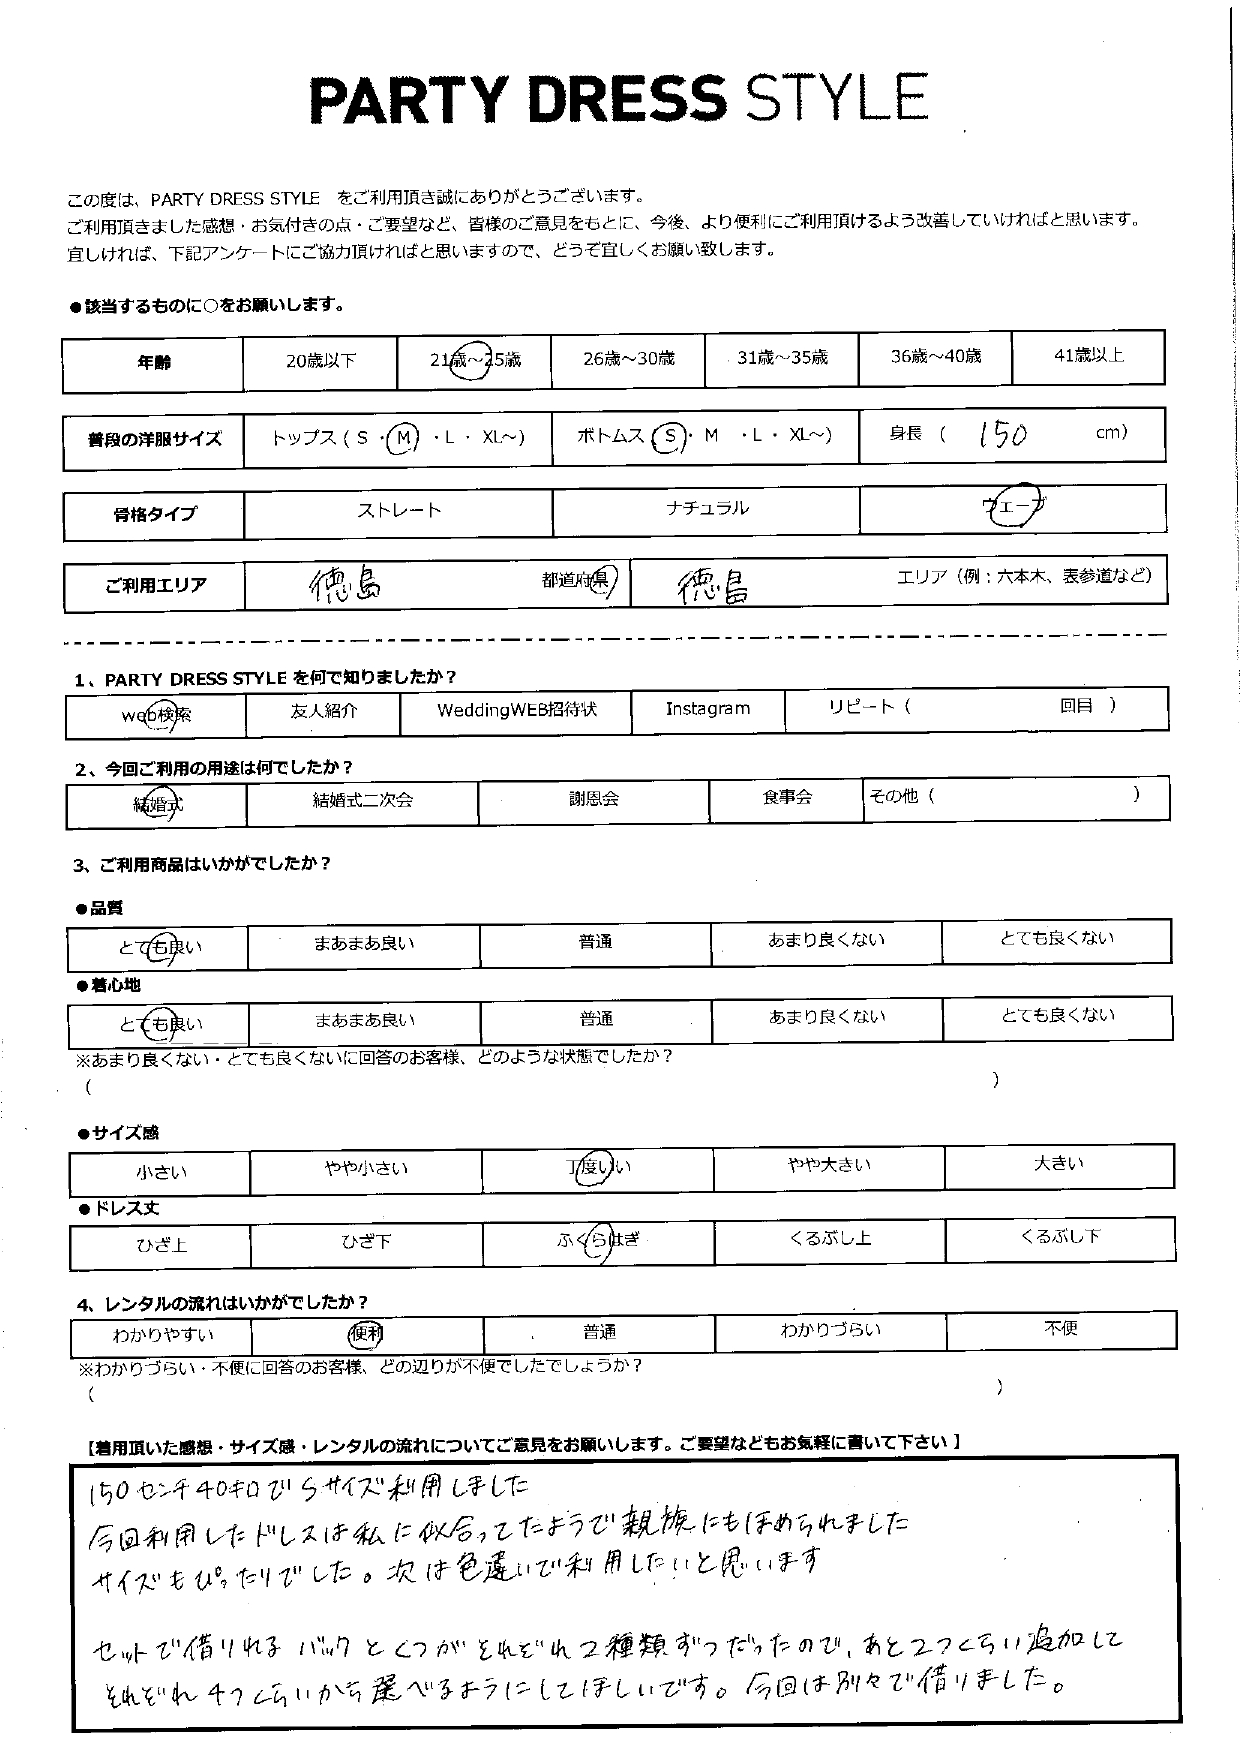 PARTY DRESS STYLE
この度は、PARTY DRESS STYLE をご利用頂き誠にありがとうございます。
ご利用頂きました感想・お気付きの点・ご要望など、皆様のご意見をもとに、今後、より便利にご利用頂けるよう改善していければと思います。
宜しければ、下記アンケートにご協力頂ければと思いますので、どうぞ宜しくお願い致します。
●該当するものに○をお願いします。
年齢 20歳以下 21歳～25歳 26歳～30歳 31歳～35歳 36歳～40歳 41歳以上
普段の洋服サイズ トップス ( S ・ M ・ L ・ XL～) ボトムス ( S ・ M ・ L ・ XL～) 身長 ( 150 cm)
骨格タイプ ストレート ナチュラル ウェーブ
ご利用エリア 徳島 都道府県 徳島 エリア（例：六本木、表参道など）
1、PARTY DRESS STYLE を何で知りましたか？
web検索 友人紹介 WeddingWEB招待状 Instagram リピート ( 回目 )
2、今回ご利用の用途は何でしたか？
結婚式 結婚式二次会 謝恩会 食事会 その他 ( )
3、ご利用商品はいかがでしたか？
●品質
とても良い まあまあ良い 普通 あまり良くない とても良くない
●着心地
とても良い まあまあ良い 普通 あまり良くない とても良くない
※あまり良くない・とても良くないに回答のお客様、どのような状態でしたか？
( )
●サイズ感
小さい やや小さい 丁度いい やや大きい 大きい
●ドレス丈
ひざ上 ひざ下 ふくらはぎ くるぶし上 くるぶし下
4、レンタルの流れはいかがでしたか？
わかりやすい 便利 普通 わかりづらい 不便
※わかりづらい・不便に回答のお客様、どの辺りが不便でしたでしょうか？
( )
【着用頂いた感想・サイズ感・レンタルの流れについてご意見をお願いします。ご要望などもお気軽に書いて下さい】
150センチ40キロでSサイズ利用しました
今回利用したドレスは私に似合ってたようで親族にもほめられました
サイズもぴったりでした。次は色違いで利用したいと思います
セットで借りれるバックとくつがそれぞれ2種類ずつだったので、あと2つくらい追加して
それぞれ4つくらいから選べるようにしてほしいです。今回は別々で借りました。